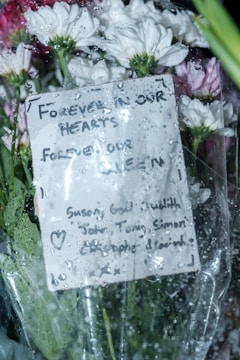 FOREVER IN OUR
HEARTS
FOREVER OUR
QUEEN
Susan, Gail, Judith
John, Tony, Simon
x x